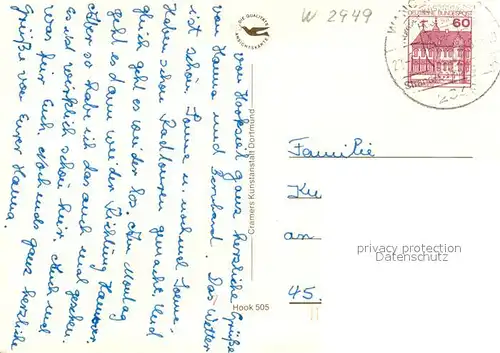 W 2949
DIE QUALITÄTS
ANSICHTSKARTE
DEUTSCHE BUNDESPOST
60
Von Hooksiel ganz herzliche Grüße
von Hanna und Bernhard. Das Wetter
ist schön, Sonne u. nochmal Sonne.
Haben schon Radtouren gemacht. Und
gleich geht es wieder los. Am Montag
geht es dann wieder Richtung Hannover.
Aber so habe ich das auch mal gesehen.
Es ist wirklich schön hier. Auch mal
was für Euch. Nochmals ganz herzliche
Grüße von Eurer Hanna.
Cramers Kunstanstalt Dortmund
Hook 505
Familie
Ku
an
45.
privacy protection
Datenschutz